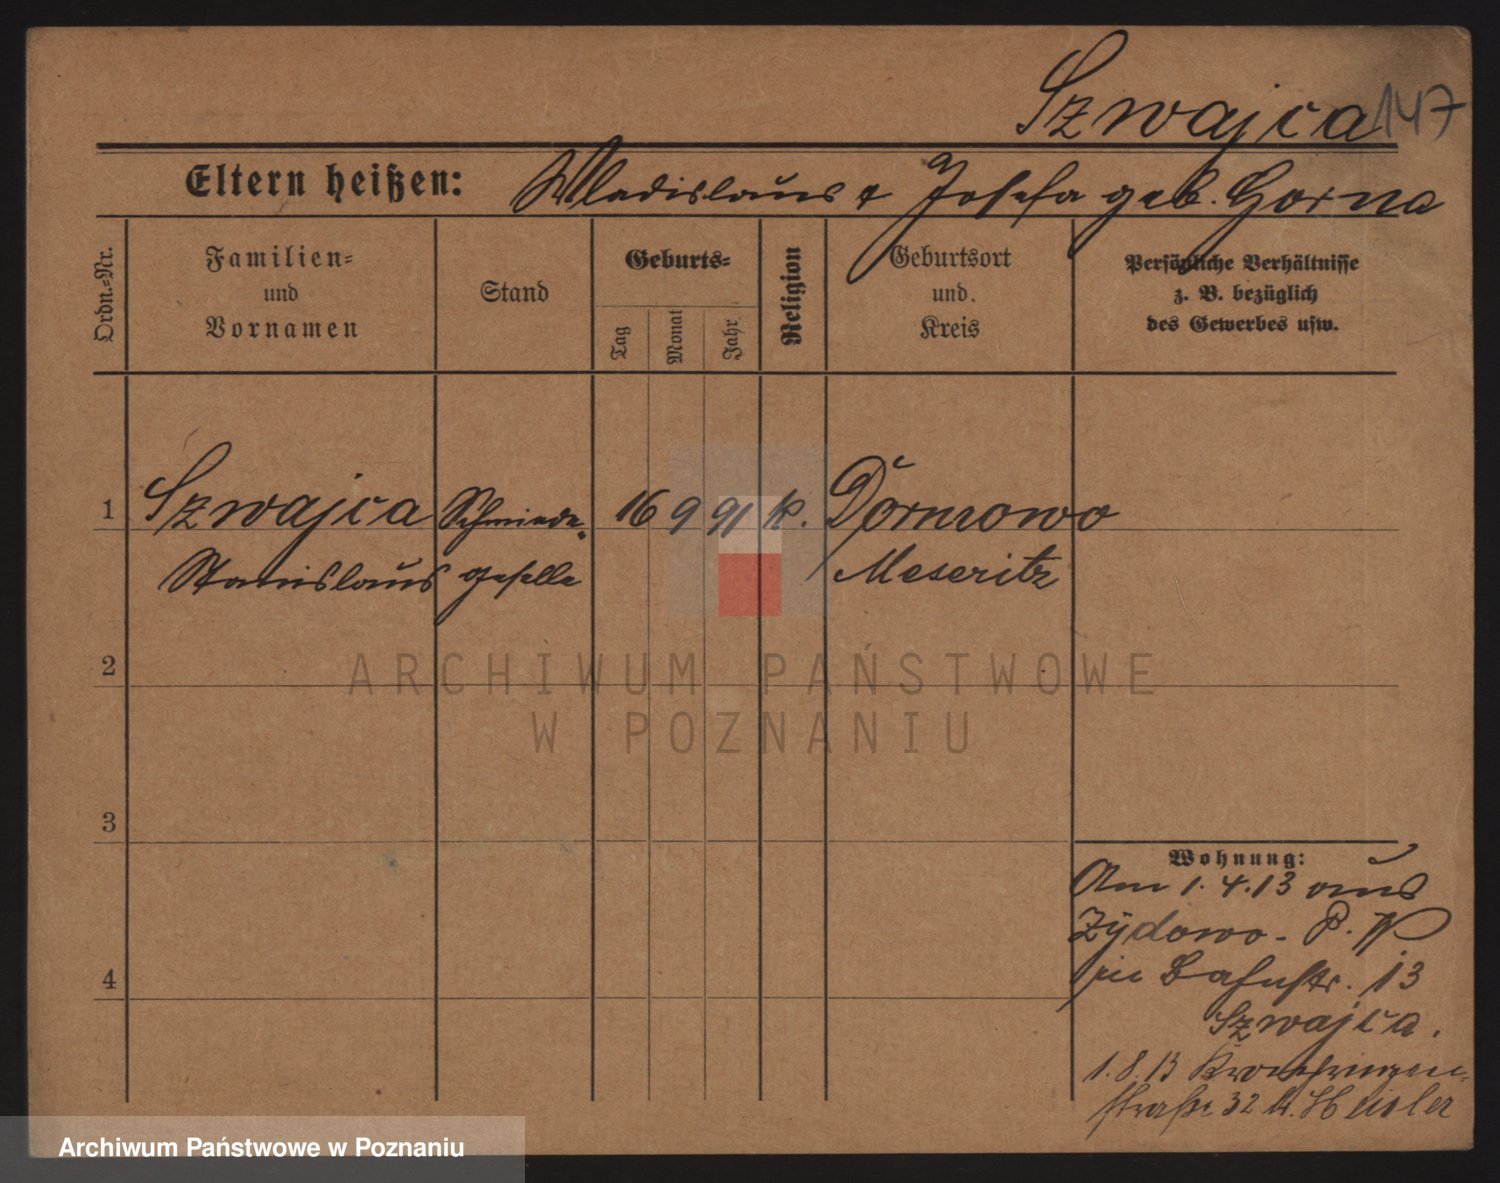 Szwajca 147
Eltern heißen: Wladislaus & Josefa geb. Gorna
Ordn.-Nr.
Familien-
und
Vornamen
Stand
Geburts-
Tag
Monat
Jahr
Religion
Geburtsort
und
Kreis
Persönliche Verhältnisse
z. B. bezüglich
des Gewerbes usw.
1 Szwajca Schmiede- 16 9 91 k. Dormowo
Stanislaus geselle Meseritz
2
ARCHIWUM PAŃSTWOWE
W POZNANIU
3
Wohnung:
Am 1.4.13 aus
Zydowo - P. W
in Bahnstr. 13
Szwajca.
4
1.8.13 Kronprinzen-
straße 32 b. Heisler
Archiwum Państwowe w Poznaniu